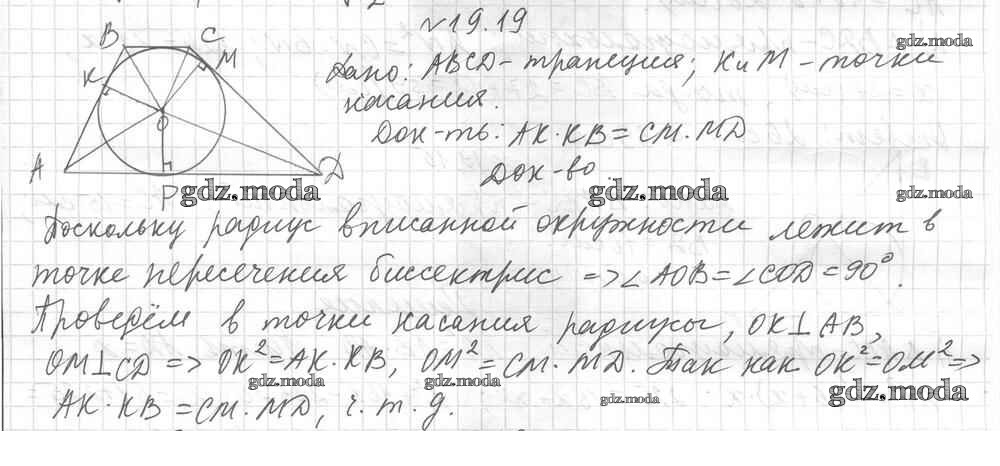 №19.19
B C
K M
Дано: ABCD - трапеция; K и M - точки
касания.
Док-ть: AK·KB = CM·MD
Док-во.
O
A P D
gdz.moda
gdz.moda
gdz.moda
gdz.moda
Поскольку радиус вписанной окружности лежит в
точке пересечения биссектрис => ∠AOB = ∠COD = 90°.
Проведём в точки касания радиусы, OK⊥AB,
OM⊥CD => OK² = AK·KB, OM² = CM·MD. Так как OK² = OM² =>
gdz.moda
gdz.moda
gdz.moda
AK·KB = CM·MD, ч.т.д.